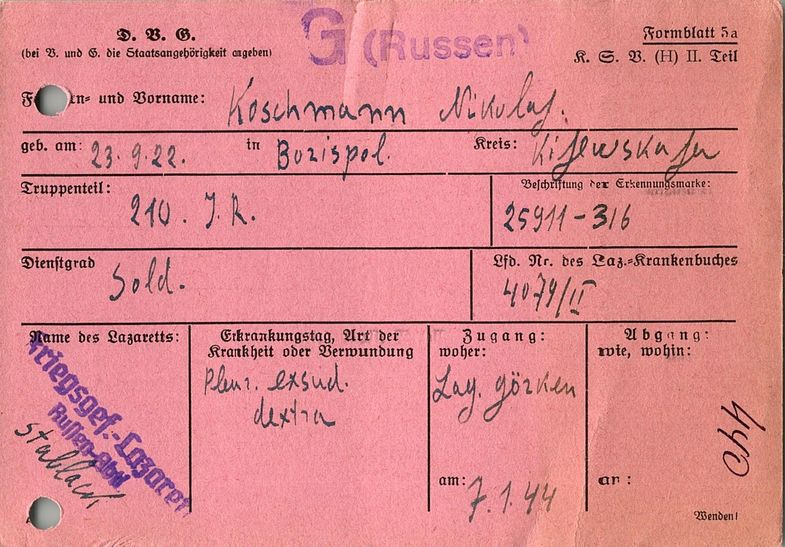 D. V. G.
(bei V. und G. die Staatsangehörigkeit angeben)
G (Russen)
Formblatt 5a
K. S. V. (H) II. Teil
en- und Vorname: Koschmann Nikolaj.
geb. am: 23.9.22. in Borispol. Kreis: Kijewskaja
Truppenteil: 210. J.R.
Beschriftung der Erkennungsmarke:
25911-316
Dienstgrad Sold.
Lfd. Nr. des Laz.-Krankenbuches
4079/II
Name des Lazaretts:
Kriegsgef.-Lazarett
Russen-Abtl
Stablack
Erkrankungstag, Art der
Krankheit oder Verwundung
Pleur. exsud.
dextra
Zugang:
woher:
Lag. görken
am: 7.1.44
Abgang:
wie, wohin:
an:
Wenden!